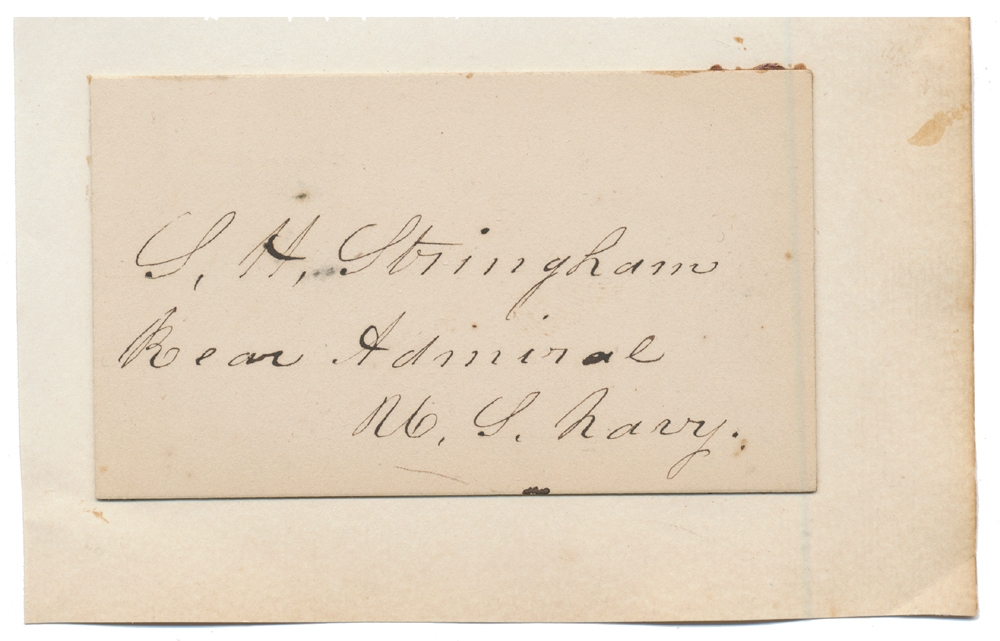 S. H. Stringham
Rear Admiral
U. S. Navy.